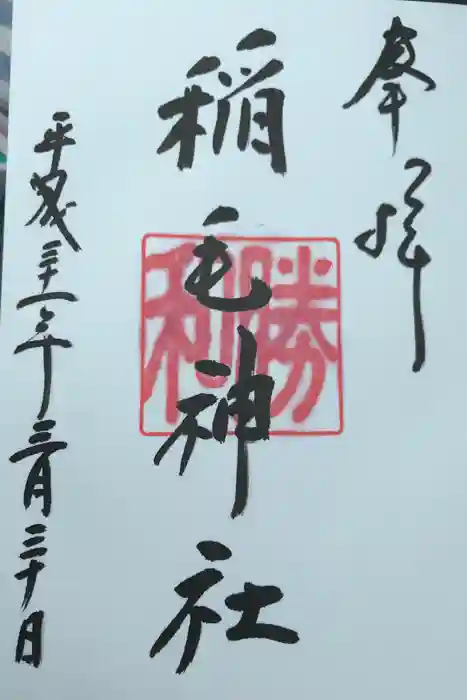 奉拝
稲毛神社
勝利
平成三十一年三月三十日